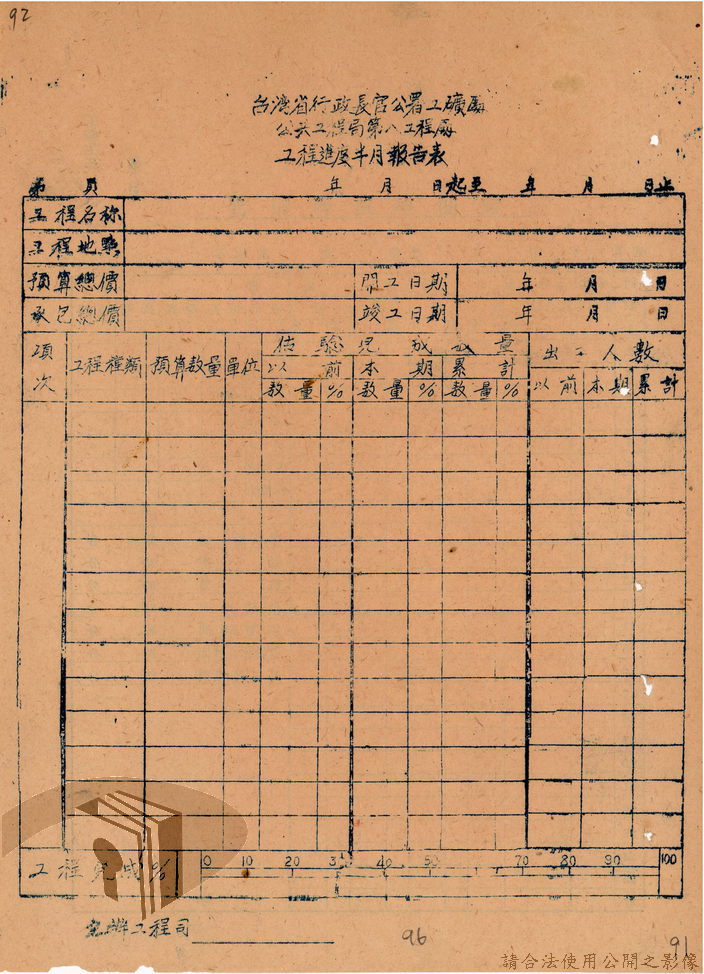 92
台湾省行政長官公署工礦處
公共工程局第八工程處
工程進度半月報告表
第 頁 年 月 日起至 年 月 日止
工程名称
工程地點
預算總價 開工日期 年 月 日
承包總價 竣工日期 年 月 日
項次 工程種類 預算數量 單位 估驗完成数量 出工人數
以前 本期 累計 以前 本期 累計
数量 % 数量 % 数量 %
工程完成% 0 10 20 30 40 50 70 80 90 100
工程司
96
91
請合法使用公開之影像